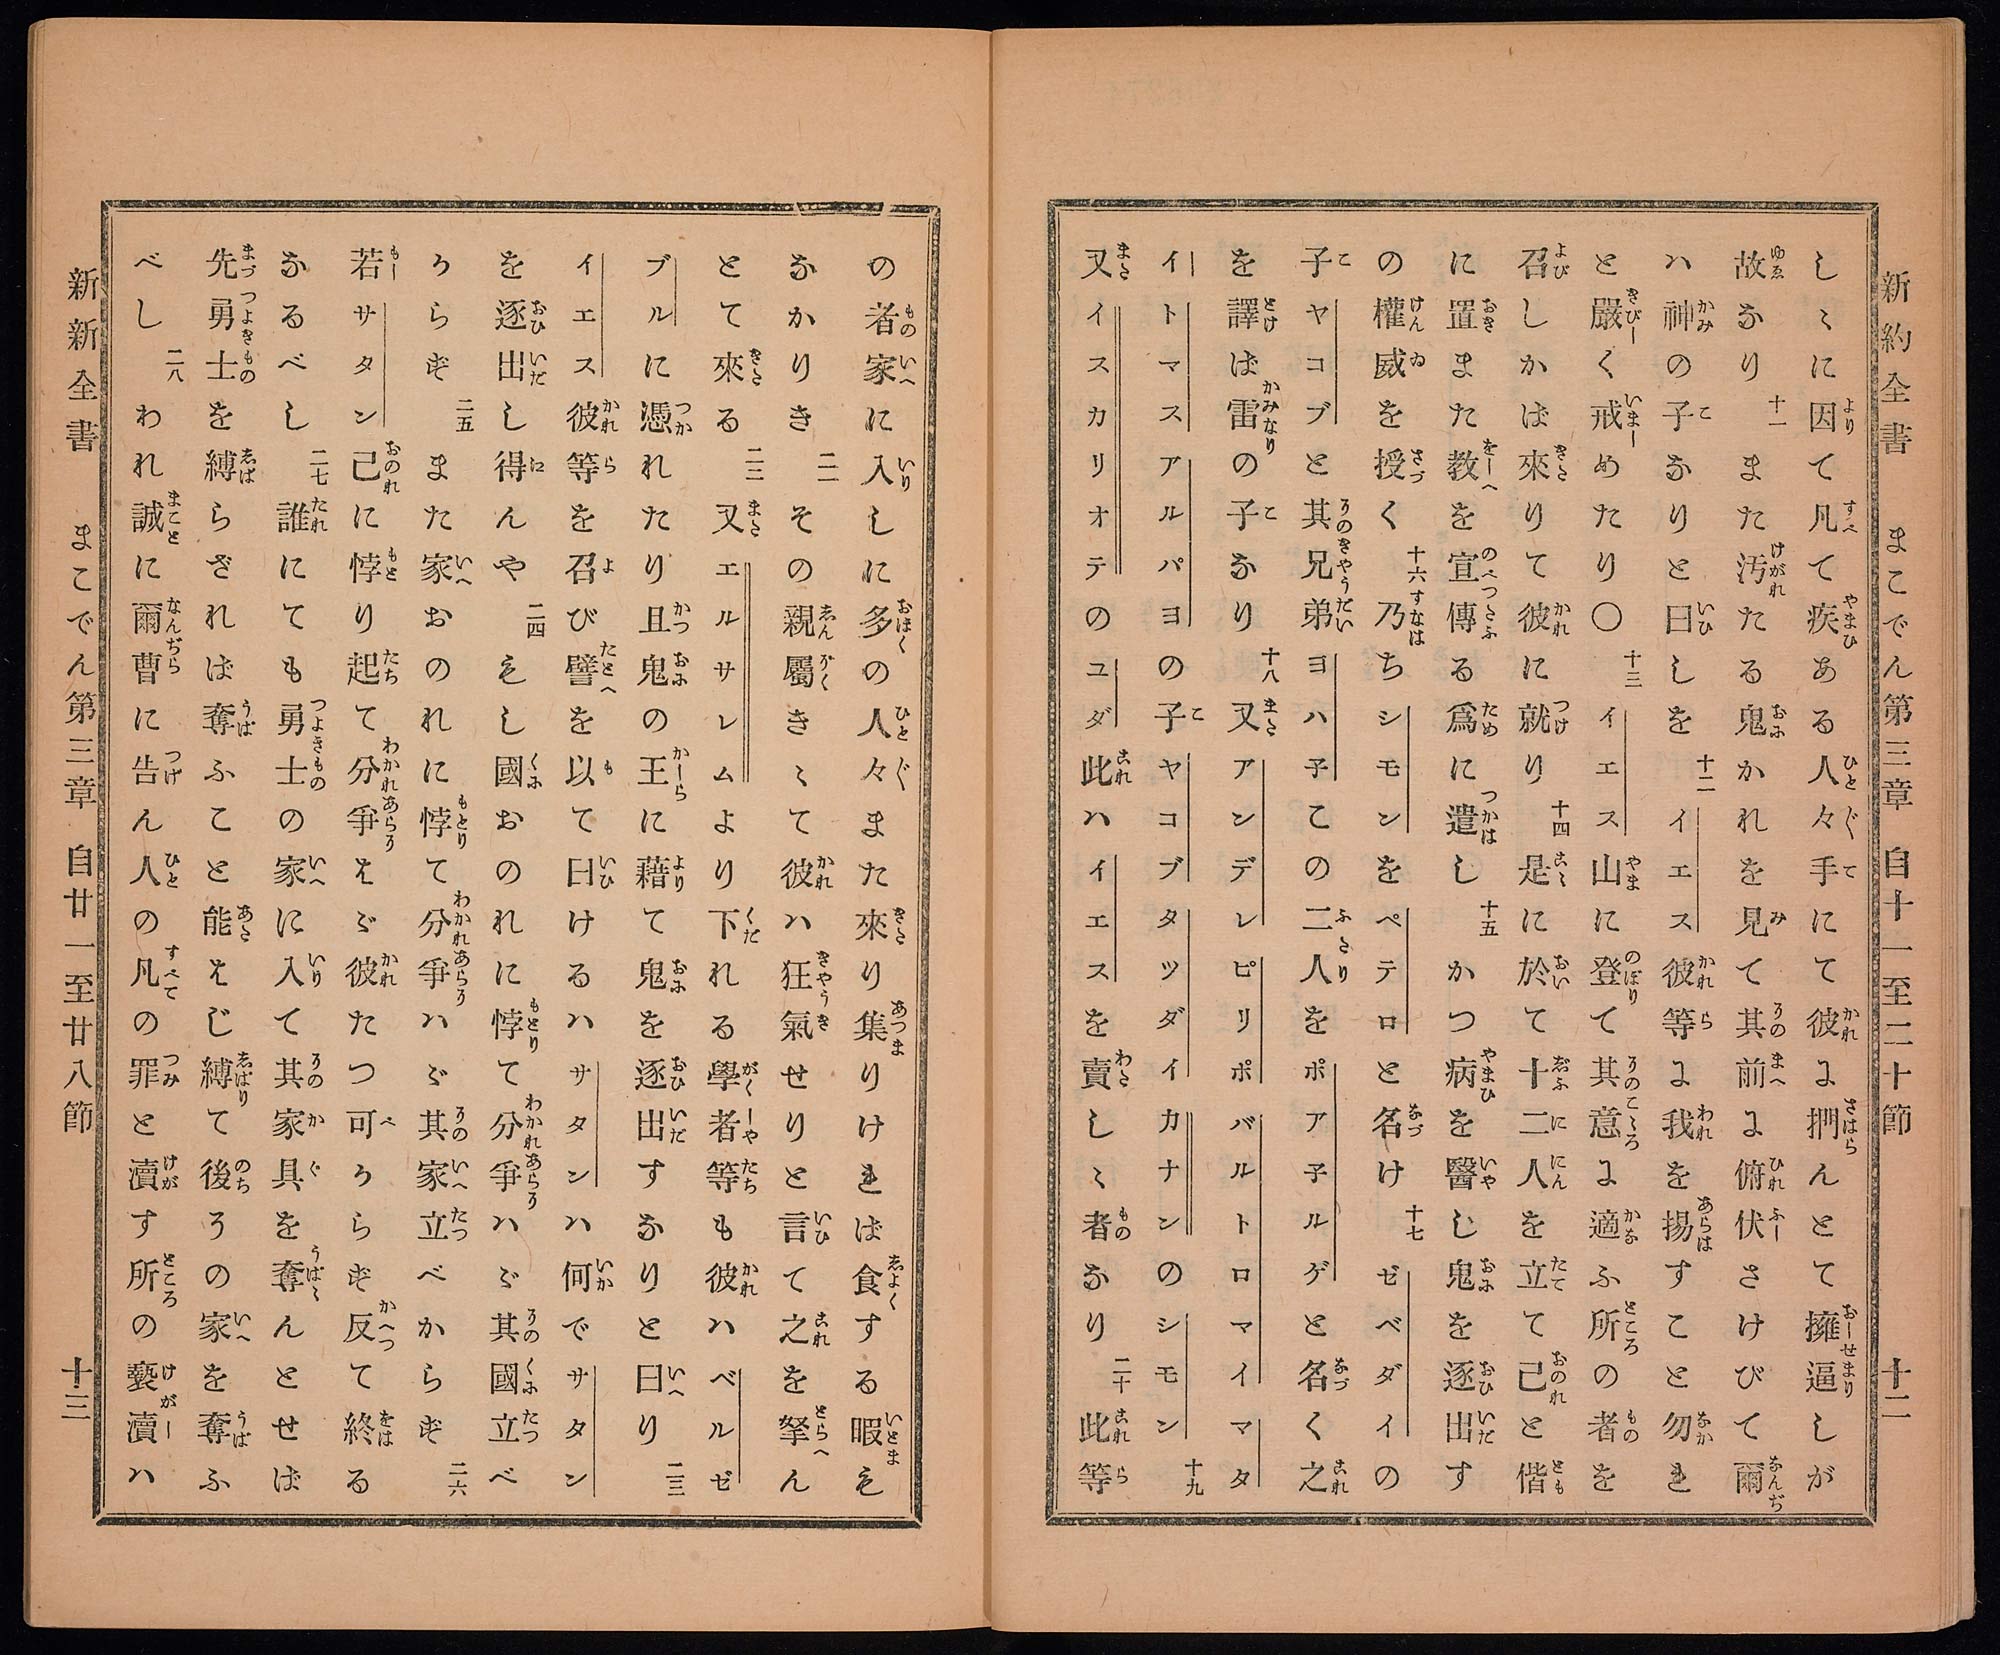 新約全書 まこでん第三章 自十一至二十節 十二
しゝに因て凡て疾ある人々手にて彼に捫んとて擁逼しが
故なり 十一 また汚たる鬼かれを見て其前に俯伏さけびて爾
ハ神の子なりと曰しを 十二 イエス彼等に我を揚すこと勿れ
と嚴く戒めたり〇 十三 イエス山に登て其意に適ふ所の者を
召しかば來りて彼に就り 十四 是に於て十二人を立て己と偕
に置また教を宣傳る爲に遣し 十五 かつ病を醫し鬼を逐出す
の權威を授く 十六 乃ちシモンをペテロと名け 十七 ゼベダイの
子ヤコブと其兄弟ヨハ子この二人をボア子ルゲと名く之
を譯ば雷の子なり 十八 又アンデレピリポバルトロマイマタ
イトマスアルパヨの子ヤコブタツダイカナンのシモン 十九
又イスカリオテのユダ此ハイエスを賣しゝ者なり 二十 此等
の者家に入しに多の人々また來り集りければ食する暇も
なかりき 二一 その親屬きゝて彼ハ狂氣せりと言て之を拏ん
とて來る 二二 又エルサレムより下れる學者等も彼ハベルゼ
ブルに憑れたり且鬼の王に藉て鬼を逐出すなりと曰り 二三
イエス彼等を召び譬を以て曰けるハサタンハ何でサタン
を逐出し得んや 二四 もし國おのれに悖て分爭ハヾ其國立べ
からず 二五 また家おのれに悖て分爭ハヾ其家立べからず 二六
若サタン己に悖り起て分爭はヾ彼たつ可からず反て終る
なるべし 二七 誰にても勇士の家に入て其家具を奪んとせば
先勇士を縛らざれば奪ふこと能はじ縛て後その家を奪ふ
べし 二八 われ誠に爾曹に告ん人の凡の罪と瀆す所の褻瀆ハ
新新全書 まこでん第三章 自廿一至廿八節 十三